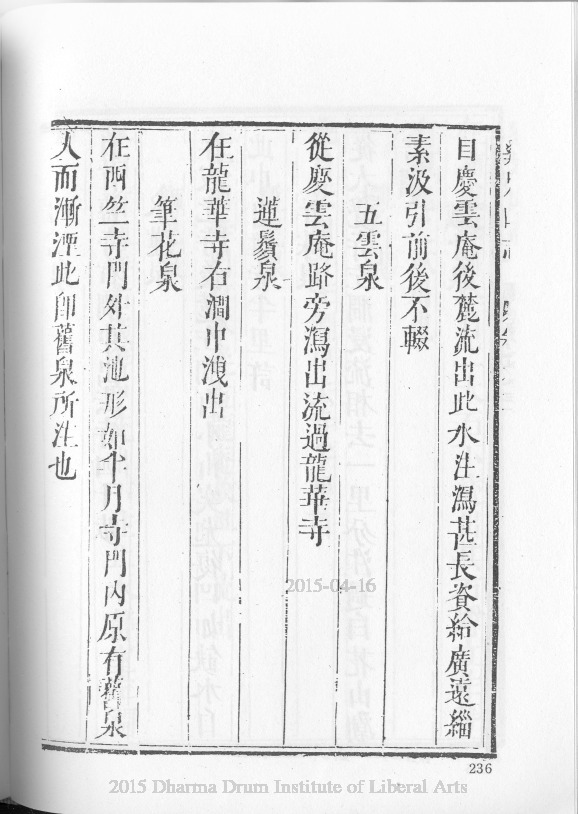 自慶雲庵後麓流出此水注瀉甚長資給廣遠緇
素汲引前後不輟
五雲泉
從慶雲庵路旁瀉出流過龍華寺
蓮鬚泉
在龍華寺右澗中洩出
筆花泉
在西竺寺門外其池形如半月寺門內原有舊泉
久而漸湮此即舊泉所注也
236
2015-04-16
2015 Dharma Drum Institute of Liberal Arts